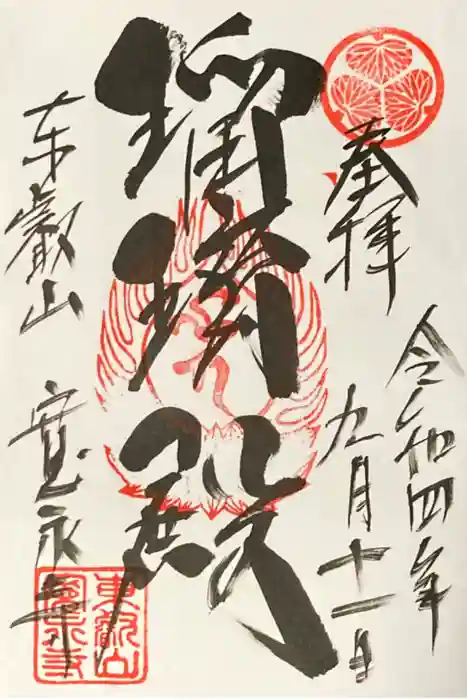 奉拝
令和四年
九月十一日
瑠璃殿
東叡山
寛永寺
東叡山
寛永寺